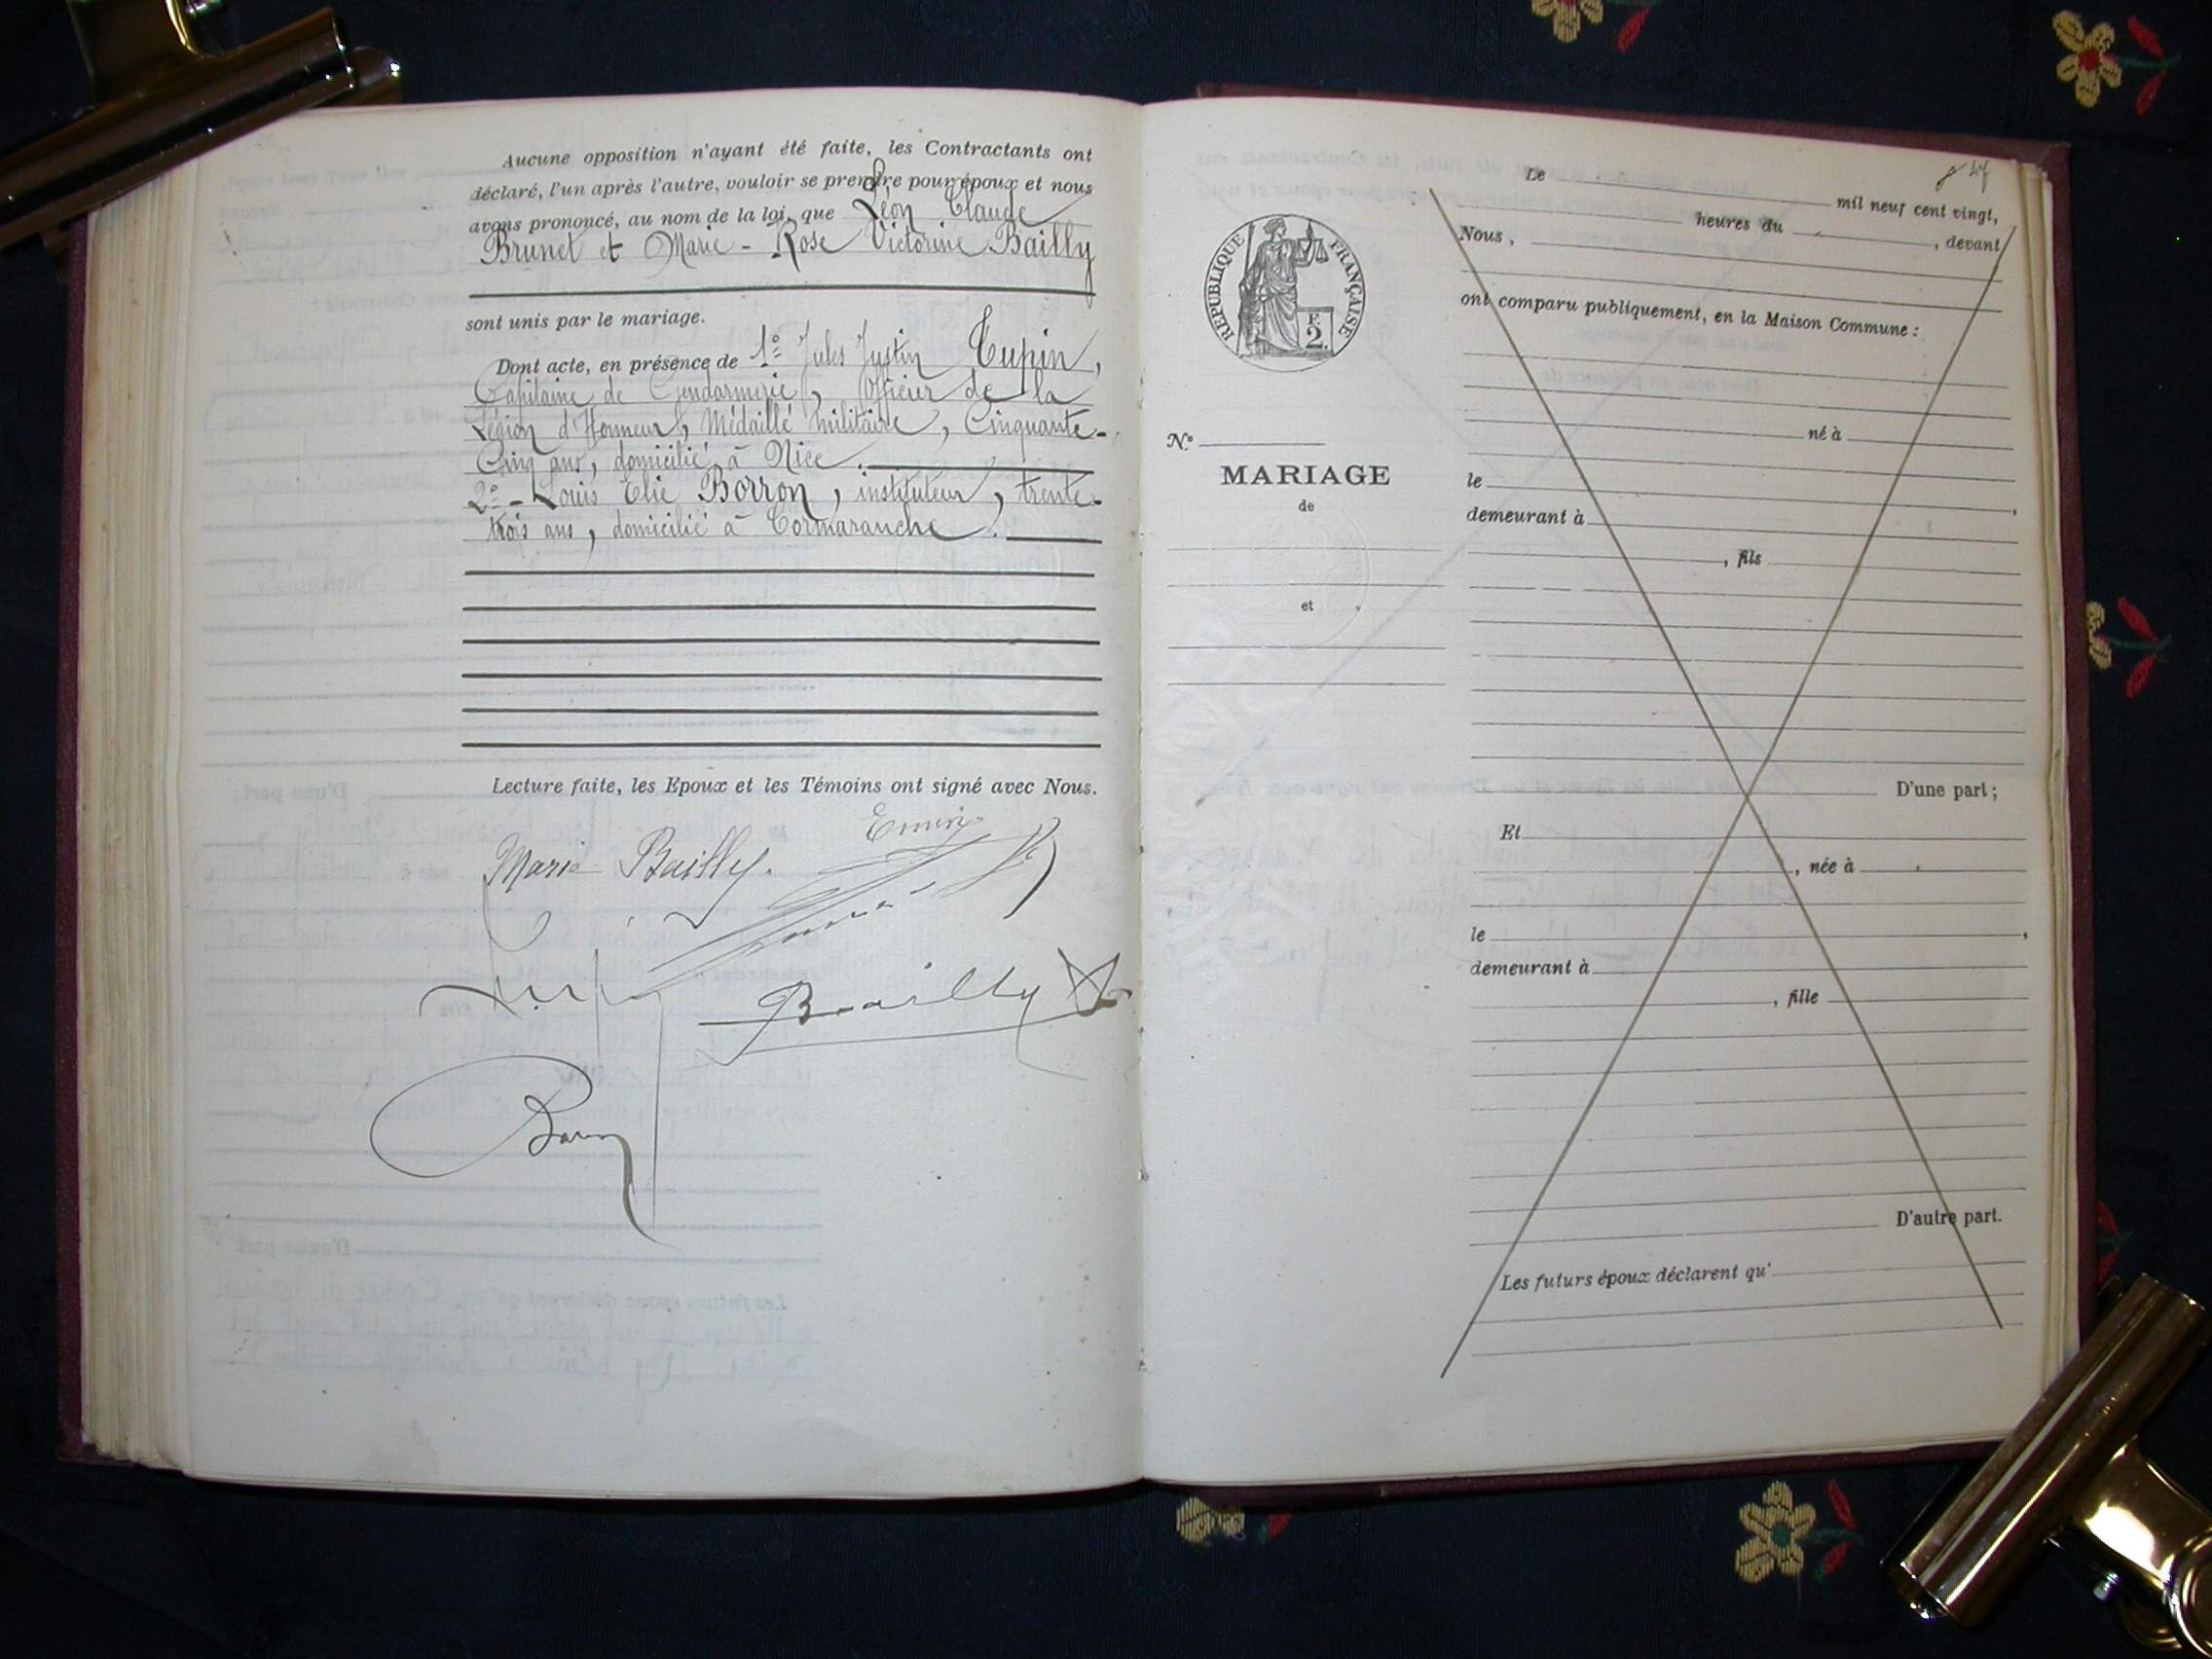 Aucune opposition n'ayant été faite, les Contractants ont
déclaré, l'un après l'autre, vouloir se prendre pour époux et nous
avons prononcé, au nom de la loi, que Léon Claude
Brunet et Marie-Rose Victorine Bailly
sont unis par le mariage.
Dont acte, en présence de 1º Jules Justin Tupin,
Capitaine de Gendarmerie, Officier de la
Légion d'Honneur, Médaillé militaire, Cinquante-
Cinq ans, domicilié à Nice.
2º - Louis Elie Borron, instituteur, trente-
trois ans, domicilié à Cormaranche.
Lecture faite, les Epoux et les Témoins ont signé avec Nous.
Marie Bailly.
Bailly
RÉPUBLIQUE FRANÇAISE
F.
2.
Nº
MARIAGE
de
et
47
Le mil neuf cent vingt,
heures du , devant
Nous,
ont comparu publiquement, en la Maison Commune :
né à
le ,
demeurant à
, fils
D'une part ;
Et
, née à
le ,
demeurant à
, fille
D'autre part.
Les futurs époux déclarent qu'